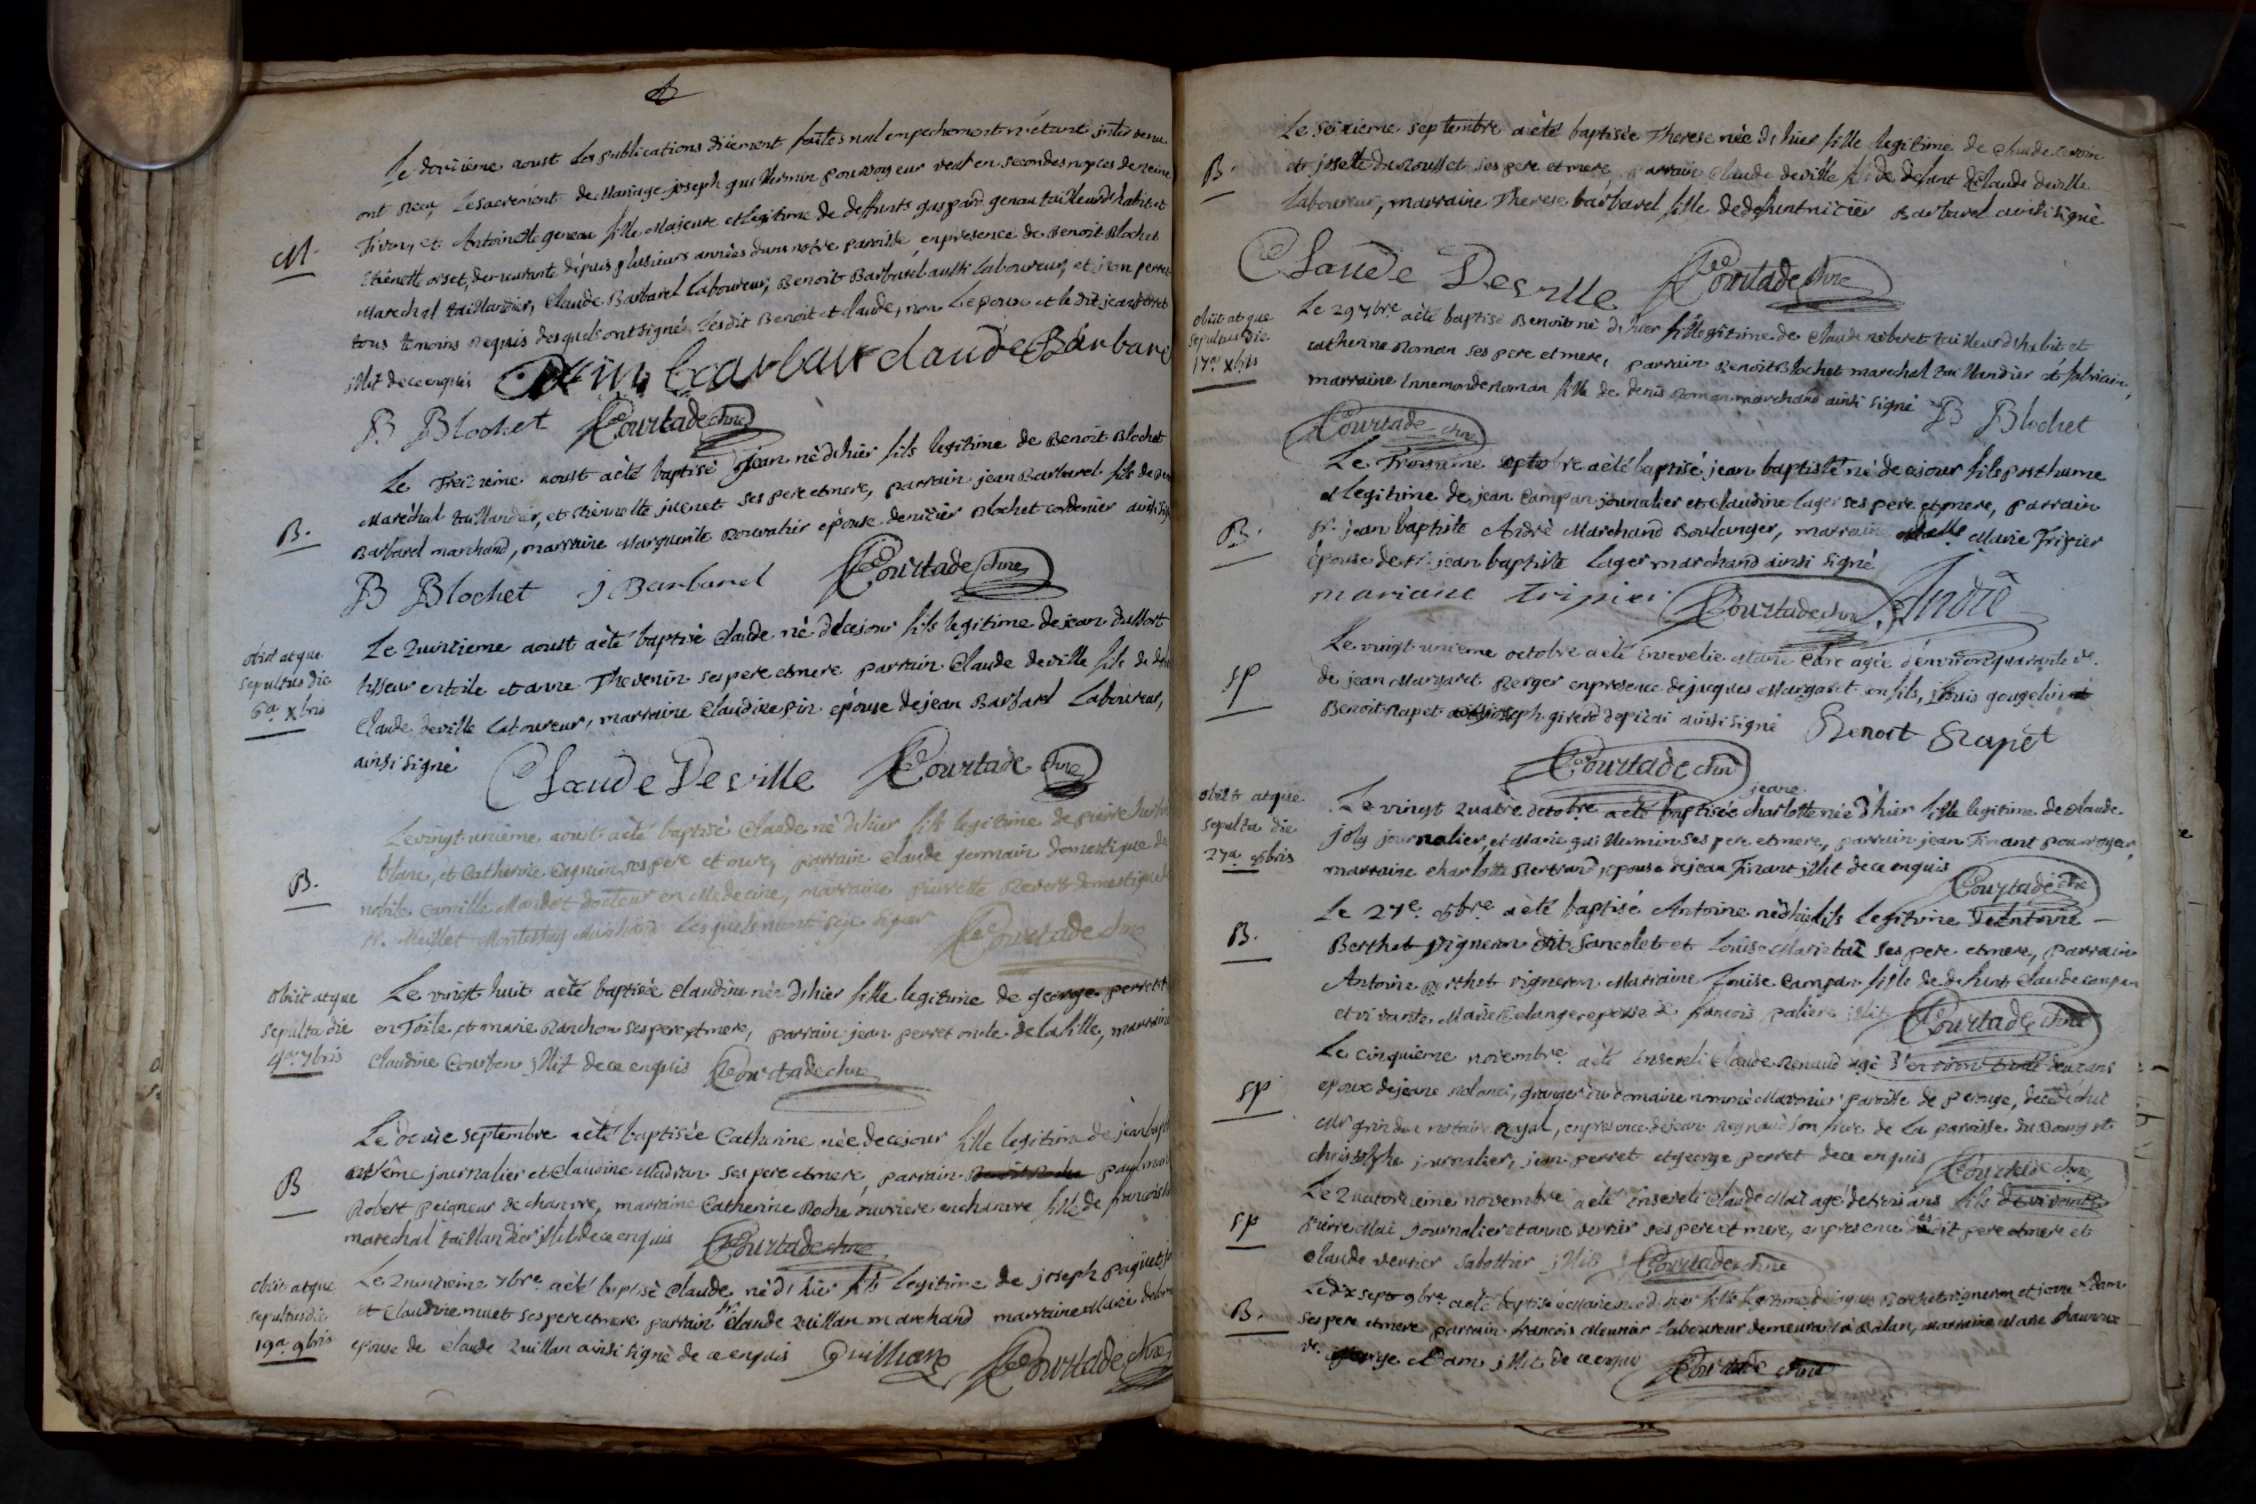 Le douzième aoust les publications düement faites nul empechement n'étant intervenu
ont recu le sacrement de Mariage joseph guillermin pourvoyeur veuf en secondes nopces de reine
M.
Tivon, et Antoinette geneau fille Majeure et legitime de deffunts gaspard genau tailleur d'habit et
Etienette orset, demeurante depuis plusieurs années dans notre parroisse, en presence de Benoit Blochet
Marechal taillandier, Claude Barbarel Laboureur, Benoit Barbarel aussi Laboureur, et jean perret
tous temoins requis desquels ont signé lesdit Benoit et claude, non l'epoux et ledit jean perret
illit. de ce enquis claude Barbarel
B Blochet Courtade chne
Le Treizieme aoust a été baptisé jean né d'hier fils legitime de Benoit Blochet
B.
Maréchal taillandier, et Etiennette juenet ses pere et mere, parrain jean Barbarel fils de
Barbarel marchand, marraine Marguerite epouse de nizier Blochet cordonier ainsi signé
B Blochet j. Barbarel Courtade chne
obiit atque
sepultus die
6a xbris
Le Quinzieme aoust a été baptisé Claude né de ce jour fils legitime de jean
tisseur en toile et anne Thevenin ses pere et mere parrain Claude deville fils de
Claude deville laboureur, marraine Claudine pin épouse de jean Barbarel Laboureur,
ainsi signé Claude Deville Courtade chne
Le vingt unième aoust a été baptisé Claude né d'hier fils legitime de pierre
B.
blanc, et Catherine ses pere et mere, parrain Claude germain domestique de
noble Camille docteur en Medecine, marraine pierrette Revert domestique de
Courtade chne
obiit atque
sepulta die
4a 7bris
Le vingt huit a été baptisée Claudine née d'hier fille legitime de george perret
en Toile, et marie Ranchon ses pere et mere, parrain jean perret oncle de la fille, marraine
Claudine illit de ce enquis Courtade chne
Le septembre a été baptisée Catherine née de ce jour fille legitime de jean
B
journalier et Claudine ses pere et mere, parrain
Robert peigneur de chanvre, marraine Catherine Roche ouvriere en chanvre fille de francois
marechal taillandier illit de ce enquis Courtade chne
obiit atque
sepultus die
19a 9bris
Le Quinzieme 7bre a été baptisé Claude né d'hier fils legitime de joseph
et Claudine muet ses pere et mere parrain Sr. Claude Quillan marchand marraine Marie
epouse de Claude Quillan ainsi signé de ce enquis Quillian Courtade chne
B.
Le Seizieme septembre a été baptisée Therese née d'hier fille legitime de Claude
et josette du Rousset ses pere et mere, parrain Claude deville fils de defunt Claude deville
Laboureur, marraine Therese barbarel fille de defunt nizier Barbarel ainsi signé
Claude Deville Courtade chne
obiit atque
sepultus die
17a xbris
Le 29 7bre a été baptisé Benoit né d'hier fils legitime de Claude tailleur d'habit et
catherine Roman ses pere et mere, parrain Benoit Blochet marechal taillandier et fabricien,
marraine Innemonde Roman fille de denis Roman marchand ainsi signé B Blochet
Courtade chne
Le Troisième octobre a été baptisé jean baptiste né de ce jour fils posthume
et legitime de jean Campan journalier et Claudine Lager ses pere et mere, parrain
B.
Sr. jean baptiste André Marchand Boulanger, marraine Marie Tripier
épouse de Sr. jean baptiste Lager marchand ainsi signé
mariane Tripier Courtade chne André
Le vingt unieme octobre a été Ensevelie Marie agée d'environ quarante ve.
SP
de jean Margaret Berger en presence de jacques Margaret son fils, gougelin
Benoit Rapet joseph ainsi signé Benoit Rapet
Courtade chne
obiit atque
sepulta die
27a 9bris
jeane
Le vingt Quatre octobre a été baptisée charlotte née d'hier fille legitime de Claude
joly journalier, et Marie guillermin ses pere et mere, parrain jean Tivant pourvoyeur,
marraine charlotte Bertrand, epouse de jean Tivant illit de ce enquis Courtade chne
Le 27e. 8bre. a été baptisé Antoine né d'hier fils legitime d'Antoine
B.
Berthet vigneron dit et Louise ses pere et mere, parrain
Antoine Berthet vigneron Marraine Louise Campan fille de defunt Claude campan
et vivante Marie Belanger epouse de francois illit. Courtade chne
Le cinquieme novembre a été Enseveli Claude Renaud agé d'environ trente deux ans
SP
epoux de jeane granger du domaine nommé paroisse de perouge, decedé chez
Mr grindon notaire Royal, en presence de jean Reynaud son frere de la paroisse du Bourg st
christophe journalier, jean perret et george perret de ce enquis Courtade chne
Le Quatorzieme novembre a été Enseveli Claude Mai agé de trois ans fils
SP
Pierre Mai Journalier et anne verrier ses pere et mere, en presence desdit pere et mere et
Claude verrier Sabottier illit Courtade chne
Le dix sept 9bre. a été baptisée Marie née d'hier fille legitime de jacques Berthet vigneron et jeane Adam
B.
ses pere et mere parrain francois Meunier laboureur demeurant à Balan, marraine Marie
ve. george Adam illit de ce enquis Courtade chne